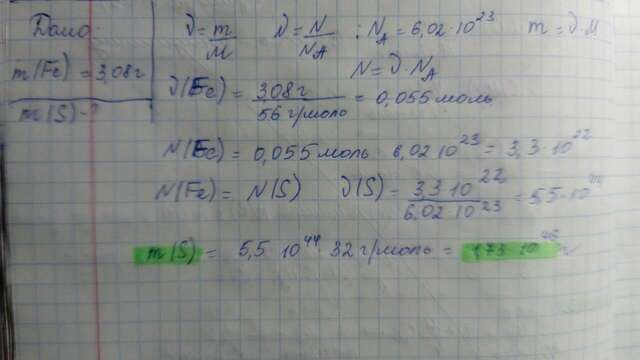 Дано:
m(Fe) = 3,08г
m(S) - ?
ν = m/M ν = N/NA ; NA = 6,02·10²³ m = ν·M
N = ν·NA
ν(Fe) = 3,08г/56 г/моль = 0,055 моль
N(Fe) = 0,055 моль · 6,02·10²³ = 3,3·10²²
N(Fe) = N(S) ν(S) = 3,3·10²²/6,02·10²³ = 5,5·10⁴⁴
m(S) = 5,5·10⁴⁴ · 32 г/моль =